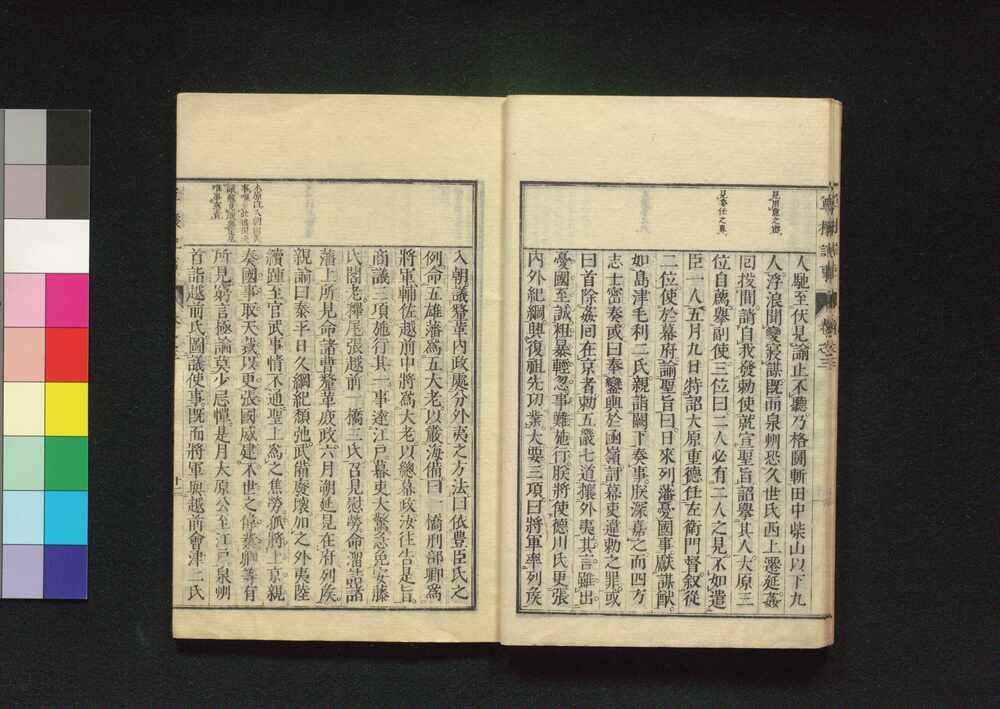 人馳至伏見諭止不聽乃格鬪斬田中柴山以下九
人浮浪聞變寢謀既而泉州恐久世氏西上遷延姦
回投間請自我發勅使就宣聖旨詔擧其人大原三
位自薦擧副使三位曰二人必有二人之見不如遣
臣一人五月九日特詔大原重德任左衛門督叙從
二位使於幕府諭聖旨曰日來列藩憂國事獻謀猷
如島津毛利二氏親詣闕下奏事朕深嘉之而四方
志士密奏或曰奉鑾輿於函嶺討幕吏違勅之罪或
曰首除姦回在京者勅五畿七道攘外夷其言雖出
憂國至誠粗暴輕忽事難施行朕將使德川氏更張
內外紀綱興復祖先功業大要三項曰將軍率列矦
入朝議釐革內政處分外夷之方法曰依豊臣氏之
例命五雄藩爲五大老以嚴海備曰一橋刑部卿爲
將軍輔佐越前中將爲大老以總幕政汝往告是旨
商議三項施行其一事達江戸幕吏大驚急免安藤
氏閣老釋尾張越前一橋三氏召見慰勞命溜詰諸
藩上所見命諸曹釐革庶政六月朔延見在府列矦
親諭曰泰平日久綱紀頽弛武備廢壞如之外夷陸
續踵至官武事情不通聖上爲之焦勞孤將上京親
奏國事取天裁以更張國威建不世之偉業卿等有
所見窮言極論莫少忌憚是月大原公至江戸泉州
首詣越前氏圖議使事既而將軍與越前會津二氏
見委任之重